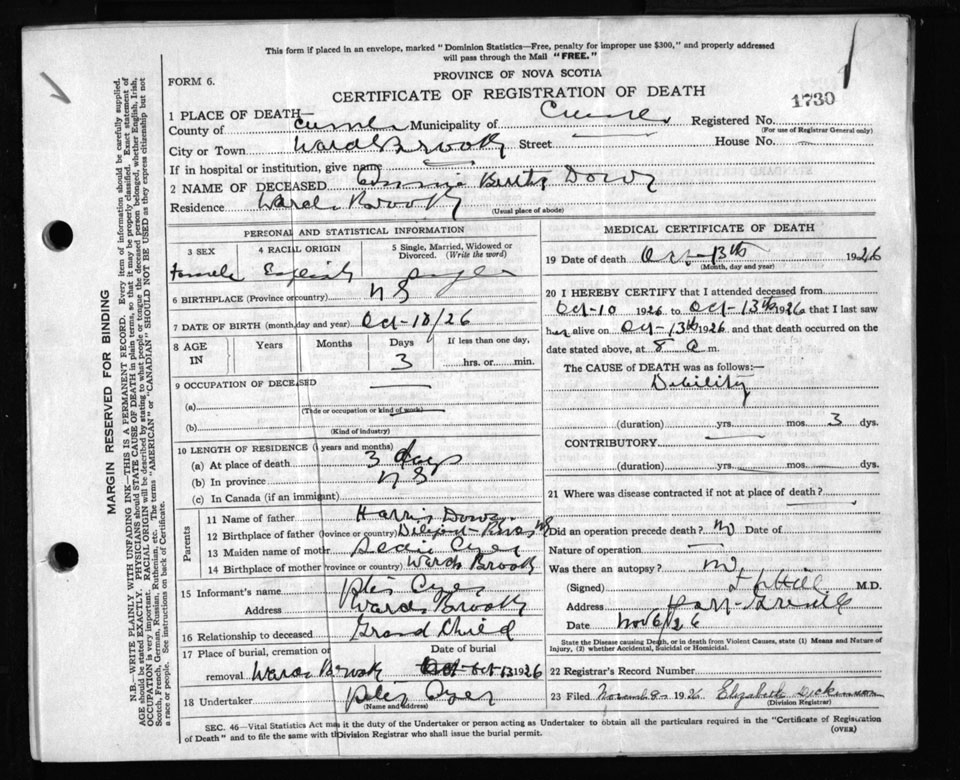 This form if placed in an envelope, marked "Dominion Statistics—Free, penalty for improper use $300," and properly addressed
will pass through the Mail "FREE."
FORM 6.
PROVINCE OF NOVA SCOTIA
CERTIFICATE OF REGISTRATION OF DEATH
1730
1 PLACE OF DEATH—
County of Municipality of Registered No.
(For use of Registrar General only)
City or Town Wards Brook Street House No.
If in hospital or institution, give name
2 NAME OF DECEASED
Residence Wards Brook
(Usual place of abode)
PERSONAL AND STATISTICAL INFORMATION
3 SEX 4 RACIAL ORIGIN 5 Single, Married, Widowed or
Divorced. (Write the word)
Female English Single
6 BIRTHPLACE (Province or country) N S
7 DATE OF BIRTH (month, day and year) Oct-10/26
8 AGE IN Years Months Days If less than one day,
3 hrs. or min.
9 OCCUPATION OF DECEASED
(a)
(Trade or occupation or kind of work)
(b)
(Kind of industry)
10 LENGTH OF RESIDENCE (in years and months)
(a) At place of death 3 days
(b) In province N S
(c) In Canada (if an immigrant)
Parents
11 Name of father Harris
12 Birthplace of father (Province or country) N S
13 Maiden name of mother
14 Birthplace of mother (Province or country) Wards Brook
15 Informant's name
Address Wards Brook
16 Relationship to deceased Grand Child
17 Place of burial, cremation or Date of burial
removal Wards Brook Oct 13 1926
18 Undertaker
(Name and address)
MEDICAL CERTIFICATE OF DEATH
19 Date of death Oct-13th 1926
(Month, day and year)
20 I HEREBY CERTIFY that I attended deceased from
Oct-10 1926 to Oct-13th 1926 that I last saw
her alive on Oct-13th 1926, and that death occurred on
date stated above, at 8 a m.
The CAUSE of DEATH was as follows:—
Debility
(duration) yrs. mos. 3 dys.
CONTRIBUTORY
(duration) yrs. mos. dys.
21 Where was disease contracted if not at place of death?
Did an operation precede death? no Date of
Nature of operation
Was there an autopsy? no
(Signed) M.D.
Address
Date Nov 6/26
State the Disease causing Death, or in death from Violent Causes, state (1) Means and Nature of
Injury, (2) whether Accidental, Suicidal or Homicidal.
22 Registrar's Record Number
23 Filed November 8 1926 Elizabeth Dickinson
(Division Registrar)
SEC. 46—Vital Statistics Act makes it the duty of the Undertaker or person acting as Undertaker to obtain all the particulars required in the "Certificate of Registration
of Death" and to file the same with the Division Registrar who shall issue the burial permit.
(OVER)
MARGIN RESERVED FOR BINDING
N.B.—WRITE PLAINLY WITH UNFADING INK—THIS IS A PERMANENT RECORD. Every item of information should be carefully supplied.
AGE should be stated EXACTLY. PHYSICIANS should STATE CAUSE OF DEATH in plain terms, so that it may be properly classified. Exact statement of
OCCUPATION is very important. RACIAL ORIGIN will be described by stating to what people or tongue the deceased person belonged, whether English, Irish,
Scotch, French, German, Russian, Ruthenian, etc. The terms "AMERICAN" or "CANADIAN" SHOULD NOT BE USED as they express citizenship but not
a race or people. See instructions on back of Certificate.